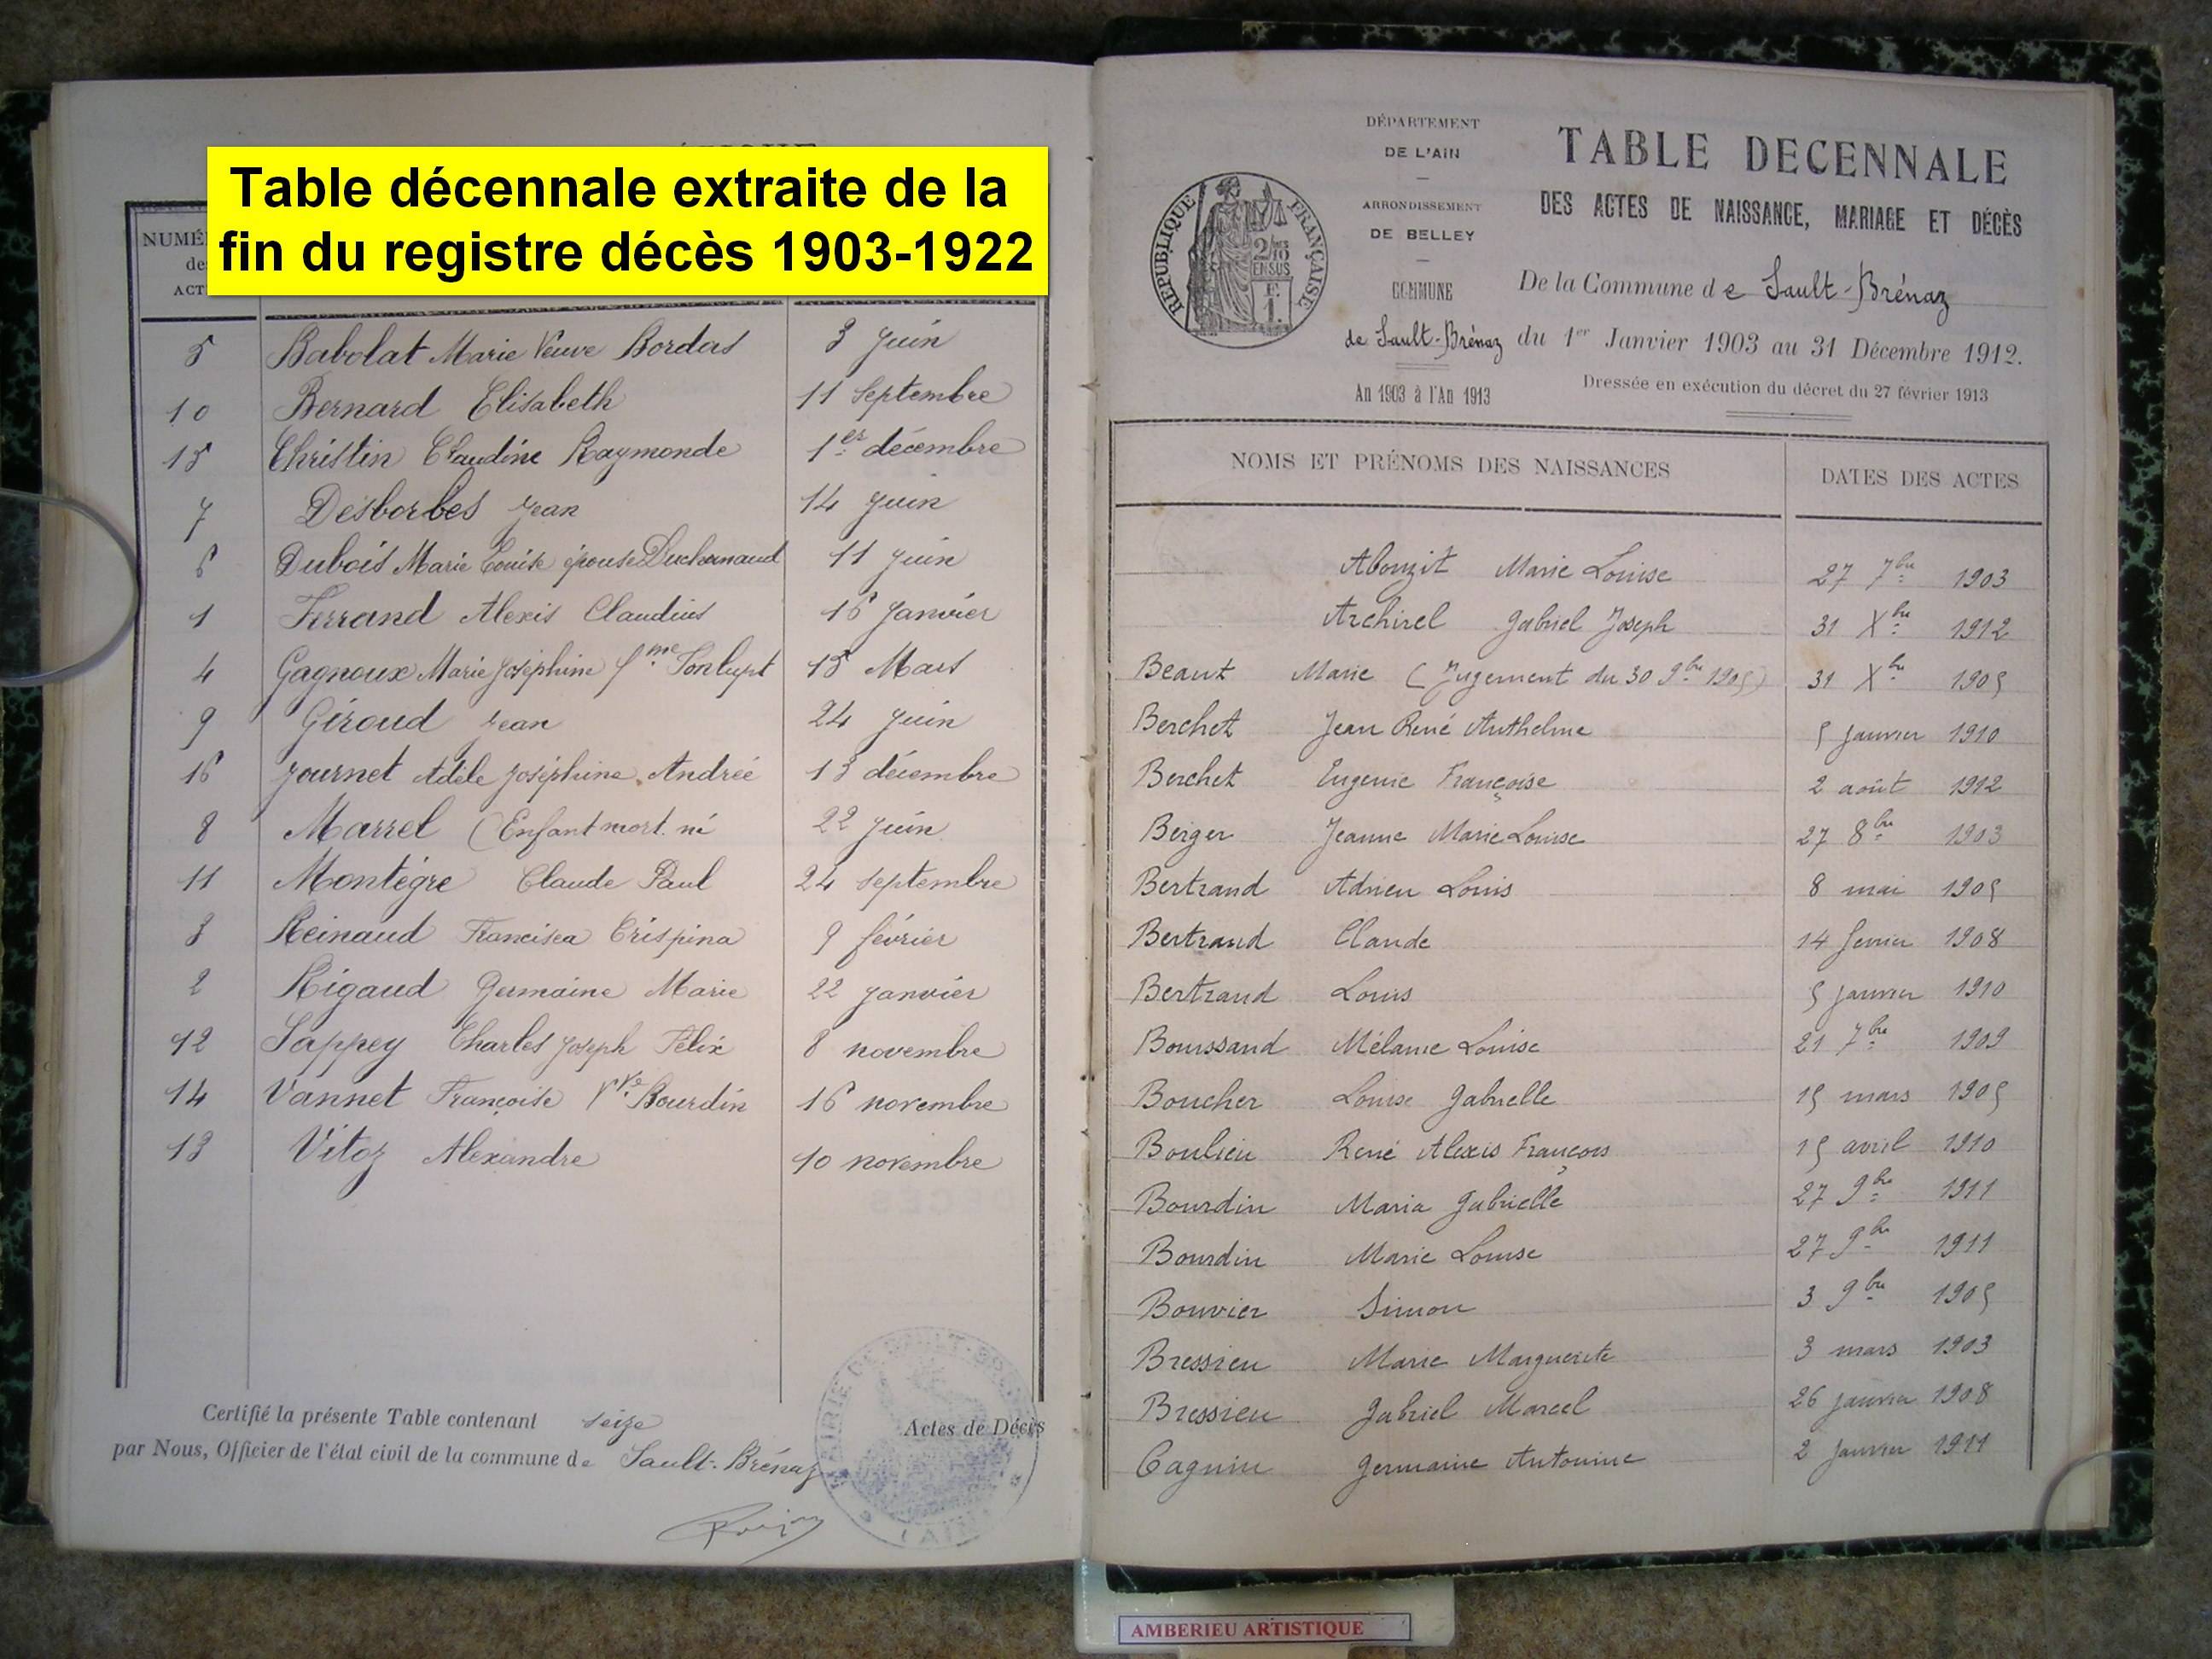 Table décennale extraite de la
fin du registre décès 1903-1922
NUMÉ
de
ACT
5 Babolat Marie Veuve Bordas 3 juin
10 Bernard Elisabeth 11 septembre
15 Christin Claudine Raymonde 1er décembre
7 Desborbes Jean 14 juin
6 Dubois Marie Louise épouse Duchenaud 11 juin
1 Ferrand Alexis Claudius 16 janvier
4 Gagnoux Marie Joséphine fme 15 Mars
9 Giroud Jean 24 juin
16 Journet Adèle Joséphine Andreé 13 décembre
8 Marrel (Enfant mort né 22 juin
11 Montégre Claude Paul 24 septembre
3 Reinaud Francisca Crispina 9 février
2 Rigaud Germaine Marie 22 janvier
12 Sappey Charles Joseph Félix 8 novembre
14 Vannet Françoise Vve Bourdin 16 novembre
13 Vitoz Alexandre 10 novembre
Certifié la présente Table contenant seize Actes de Décès
par Nous, Officier de l'état civil de la commune de Sault-Brénaz
DÉPARTEMENT
DE L'AIN
ARRONDISSEMENT
DE BELLEY
COMMUNE
de Sault-Brénaz
An 1903 à l'An 1913
RÉPUBLIQUE FRANÇAISE
TABLE DECENNALE
DES ACTES DE NAISSANCE, MARIAGE ET DÉCÈS
De la Commune de Sault-Brénaz
du 1er Janvier 1903 au 31 Décembre 1912.
Dressée en exécution du décret du 27 février 1913
NOMS ET PRÉNOMS DES NAISSANCES DATES DES ACTES
Abouzit Marie Louise 27 7bre 1903
Archirel Gabriel Joseph 31 Xbre 1912
Beaut Marie (Jugement du 30 9bre 1905) 31 Xbre 1905
Berchet Jean René Anthelme 5 janvier 1910
Berchet Eugenie Françoise 2 août 1912
Berger Jeanne Marie Louise 27 8bre 1903
Bertrand Adrien Louis 8 mai 1905
Bertrand Claude 14 fevrier 1908
Bertrand Louis 5 janvier 1910
Bourssand Mélanie Louise 21 7bre 1909
Boucher Louise Gabrielle 15 mars 1905
Boulieu René Alexis François 15 avril 1910
Bourdin Maria Gabrielle 27 9bre 1911
Bourdin Marie Louise 27 9bre 1911
Bouvier Simon 3 9bre 1905
Bressieu Marie Marguerite 3 mars 1903
Bressieu Gabriel Marcel 26 janvier 1908
Cagnin Germaine Antonine 2 janvier 1911
AMBERIEU ARTISTIQUE